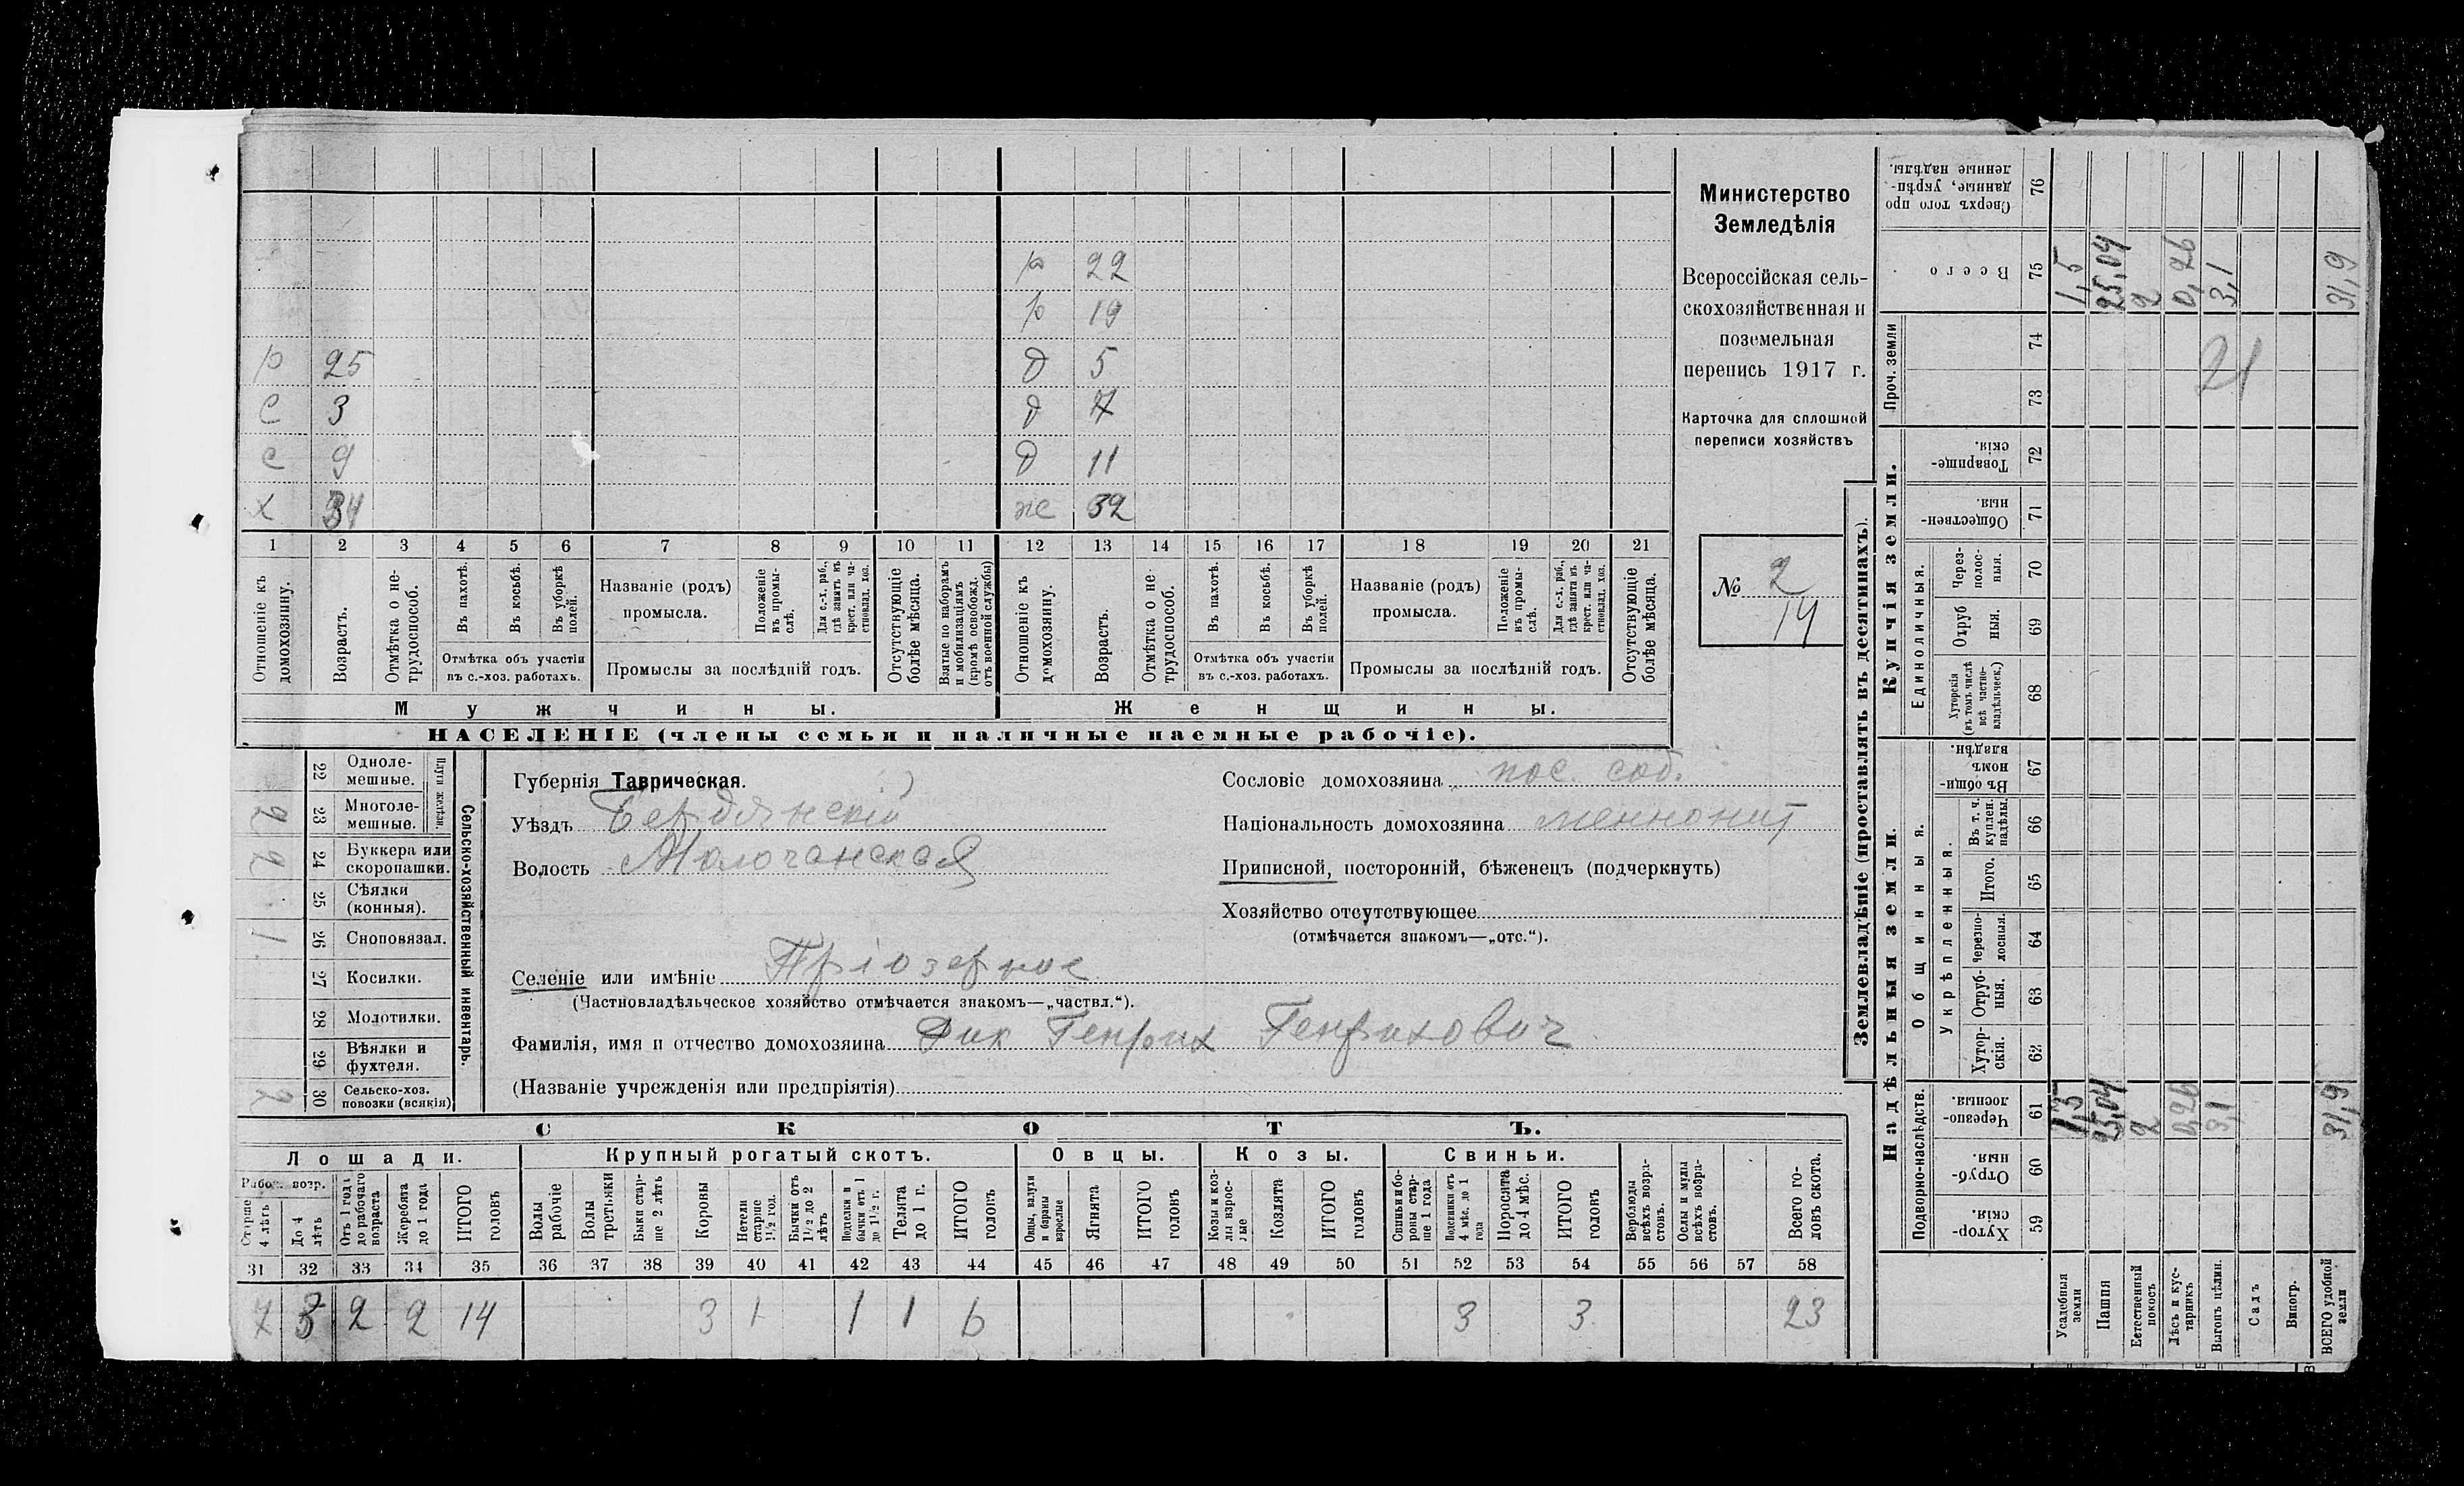 р 22
р 19
р 25 д 5
с 3 д 7
с 9 д 11
х 34 же 32
1 2 3 4 5 6 7 8 9 10 11 12 13 14 15 16 17 18 19 20 21
Отношеніе къ домохозяину.
Возрастъ.
Отмѣтка о нетрудоспособ.
Въ пахотѣ.
Въ косьбѣ.
Въ уборкѣ полей.
Отмѣтка объ участіи
въ с.-хоз. работахъ.
Названіе (родъ)
промысла.
Положеніе въ промыслѣ.
Для с.-х. раб., гдѣ занятъ въ крест. или частновлад. хоз.
Промыслы за послѣдній годъ.
Отсутствующіе болѣе мѣсяца.
Взятые по наборамъ и мобилизаціямъ (кромѣ освобожд. отъ военной службы)
Отношеніе къ домохозяину.
Возрастъ.
Отмѣтка о не трудоспособ.
Въ пахотѣ.
Въ косьбѣ.
Въ уборкѣ полей.
Отмѣтка объ участіи
въ с.-хоз. работахъ.
Названіе (родъ)
промысла.
Положеніе въ промыслѣ.
Для с.-х. раб., гдѣ занята въ крест. или частновлад. хоз.
Промыслы за послѣдній годъ.
Отсутствующіе болѣе мѣсяца.
Мужчины. Женщины.
НАСЕЛЕНІЕ (члены семьи и наличные наемные рабочіе).
Министерство
Земледѣлія
Всероссійская сель-
скохозяйственная и
поземельная
перепись 1917 г.
Карточка для сплошной
переписи хозяйствъ
№ 2
14
22 Однолемешные.
Плуги желѣзн.
2 23 Многолемешные.
2 24 Буккера или скоропашки.
25 Сѣялки (конныя).
1 26 Сноповязал.
27 Косилки.
28 Молотилки.
29 Вѣялки и фухтеля.
2 30 Сельско-хоз. повозки (всякія)
Сельско-хозяйственный инвентарь.
Губернія Таврическая.
Уѣздъ Бердянскій
Волость Молочанская
Селеніе или имѣніе Пріозерное
(Частновладѣльческое хозяйство отмѣчается знакомъ—„частвл.“).
Фамилія, имя и отчество домохозяина Дик Генрих Генрихович
(Названіе учрежденія или предпріятія)
Сословіе домохозяина пос. соб.
Національность домохозяина меннонит
Приписной, посторонній, бѣженецъ (подчеркнуть)
Хозяйство отсутствующее
(отмѣчается знакомъ—„отс.“).
СКОТЪ.
Лошади. Крупный рогатый скотъ. Овцы. Козы. Свиньи.
Рабоч. возр.
Старше 4 лѣтъ
До 4 лѣтъ
Отъ 1 года до рабочаго возраста
Жеребята до 1 года
ИТОГО головъ
Волы рабочіе
Волы третьяки
Быки старше 2 лѣтъ
Коровы
Нетели старше 1½ год.
Бычки отъ 1½ до 2 лѣтъ
Подтелки и бычки отъ 1 до 1½ г.
Телята до 1 г.
ИТОГО головъ
Овцы, валухи и бараны взрослые
Ягнята
ИТОГО головъ
Козы и козлы взрослые
Козлята
ИТОГО головъ
Свиньи и бороны старше 1 года
Подсвинки отъ 4 мѣс. до 1 года
Поросята до 4 мѣс.
ИТОГО головъ
Верблюды всѣхъ возрастовъ.
Ослы и мулы всѣхъ возрастовъ.
Всего головъ скота.
31 32 33 34 35 36 37 38 39 40 41 42 43 44 45 46 47 48 49 50 51 52 53 54 55 56 57 58
7 3 2 2 14 3 1 1 1 6 3 3 23
Землевладѣніе (проставлять въ десятинахъ).
Надѣльныя земли. Купчія земли.
Проч. земли
Подворно-наслѣдств.
Общинныя.
Укрѣпленныя.
Единоличныя.
Сверхъ того проданные, укрѣпленные надѣлы. 76
Всего 75
74
73
Товарищескія. 72
Общественныя. 71
Черезполосныя. 70
Отрубныя. 69
Хуторскія (въ томъ числѣ всѣ частновладѣльческ.) 68
Въ общинномъ владѣн. 67
Въ т. ч. куплен. надѣлы. 66
Итого. 65
Черезполосныя. 64
Отрубныя. 63
Хуторскія. 62
Черезполосныя. 61
Отрубныя. 60
Хуторскія. 59
Усадебныя земли 1,5
Пашня 25,04 25,04
Естественный покосъ 2 2
Лѣсъ и кустарникъ 0,26 0,26
Выгонъ цѣлин. 3,1 3,1
Садъ
Виногр.
ВСЕГО удобной земли 31,9 31,9
21